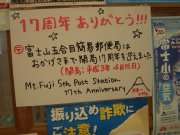 17周年ありがとう!!!
〒富士山五合目簡易郵便局は
おかげさまで開局17周年を迎えました
(開局:平成3年4月15日)
Mt. Fuji 5th Post Station.
17th Anniversary
振り込め詐欺に
ご注意!